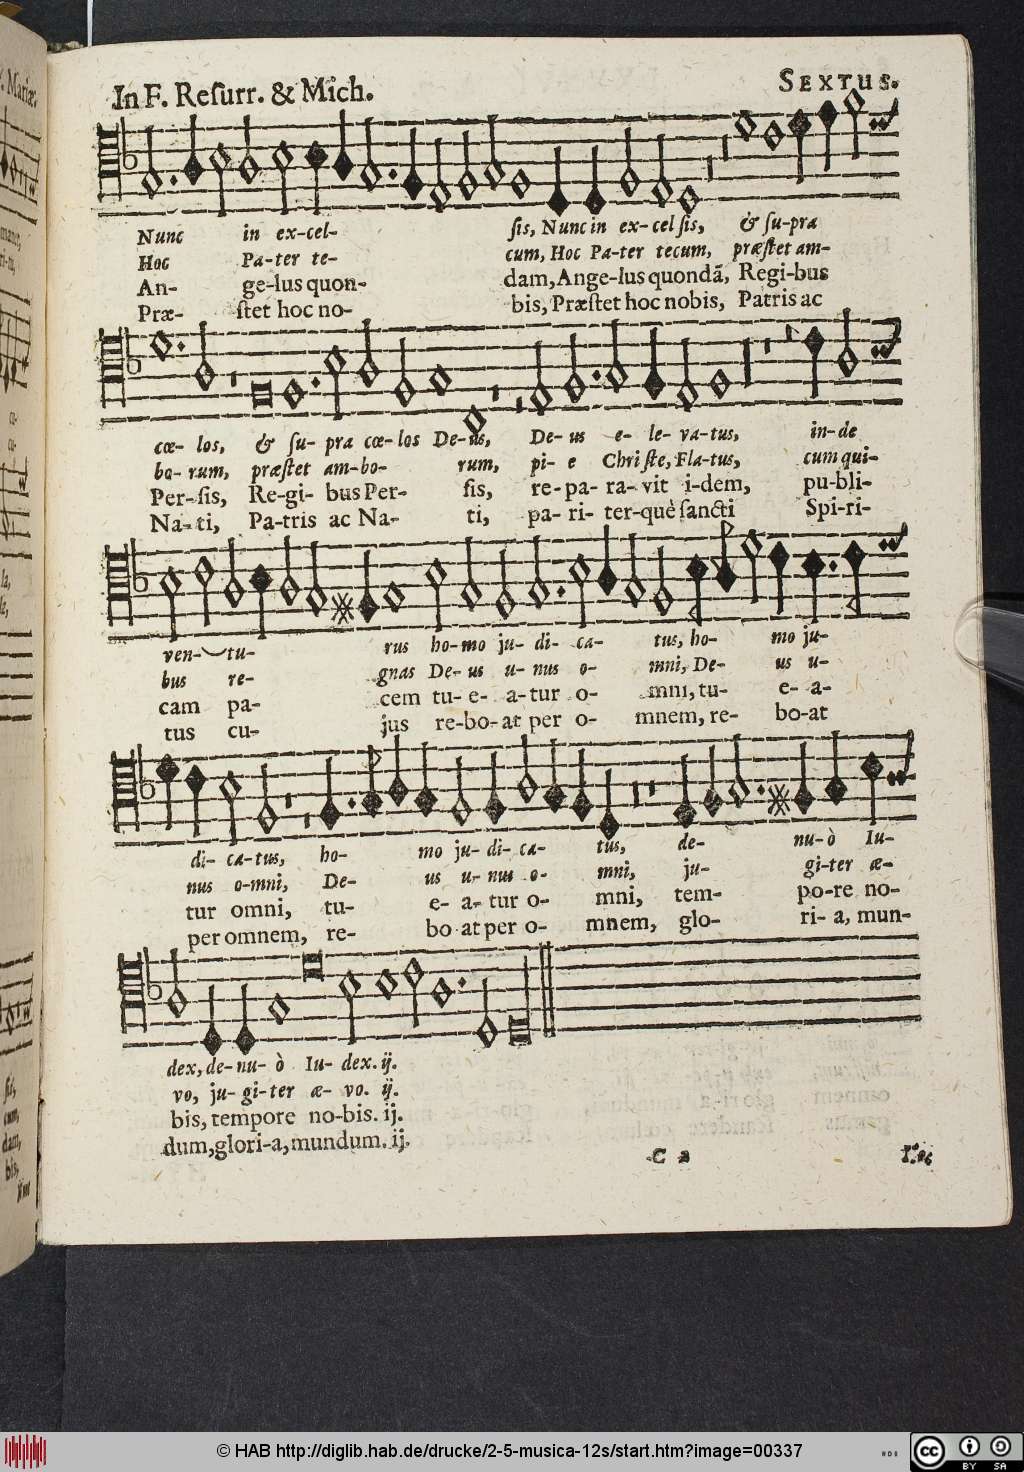 . Mariæ.
In F. Reſurr. & Mich.
SEXTUS.
Nunc in ex-cel- ſis, Nunc in ex-cel ſis, & ſu-pra
Hoc Pa-ter te- cum, Hoc Pa-ter tecum, præſtet am-
An- ge-lus quon- dam, Ange-lus quondā, Regi-bus
Præ- ſtet hoc no- bis, Præſtet hoc nobis, Patris ac
cœ- los, & ſu- pra cœ-los De-us, De- us e- le- va-tus, in-de
bo- rum, præſtet am-bo- rum, pi- e Chri ſte, Fla-tus, cum qui-
Per-ſis, Re-gi- bus Per- ſis, re-pa- ra-vit i-dem, pu-bli-
Na-ti, Pa-tris ac Na- ti, pa-ri-ter-què ſancti Spi-ri-
ven- tu- rus ho-mo ju- di- ca- tus, ho- mo ju-
bus re- gnas De-us u- nus o- mni, De- us u-
cam pa- cem tu- e- a-tur o- mni, tu- e- a-
tus cu- jus re-bo-at per o- mnem, re- bo-at
di- ca-tus, ho- mo ju- di- ca- tus, de- nu-ò Iu-
nus o-mni, De- us u- nus o- mni, ju- gi-ter æ-
tur omni, tu- e- a- tur o- mni, tem- po-re no-
per omnem, re- bo at per o- mnem, glo- ri- a, mun-
dex, de-nu- ò Iu- dex. ij.
vo, ju- gi-ter æ- vo. ij.
bis, tempore no-bis. ij.
dum, glori-a, mundum. ij.
C 2
© HAB http://diglib.hab.de/drucke/2-5-musica-12s/start.htm?image=00337
cc BY SA